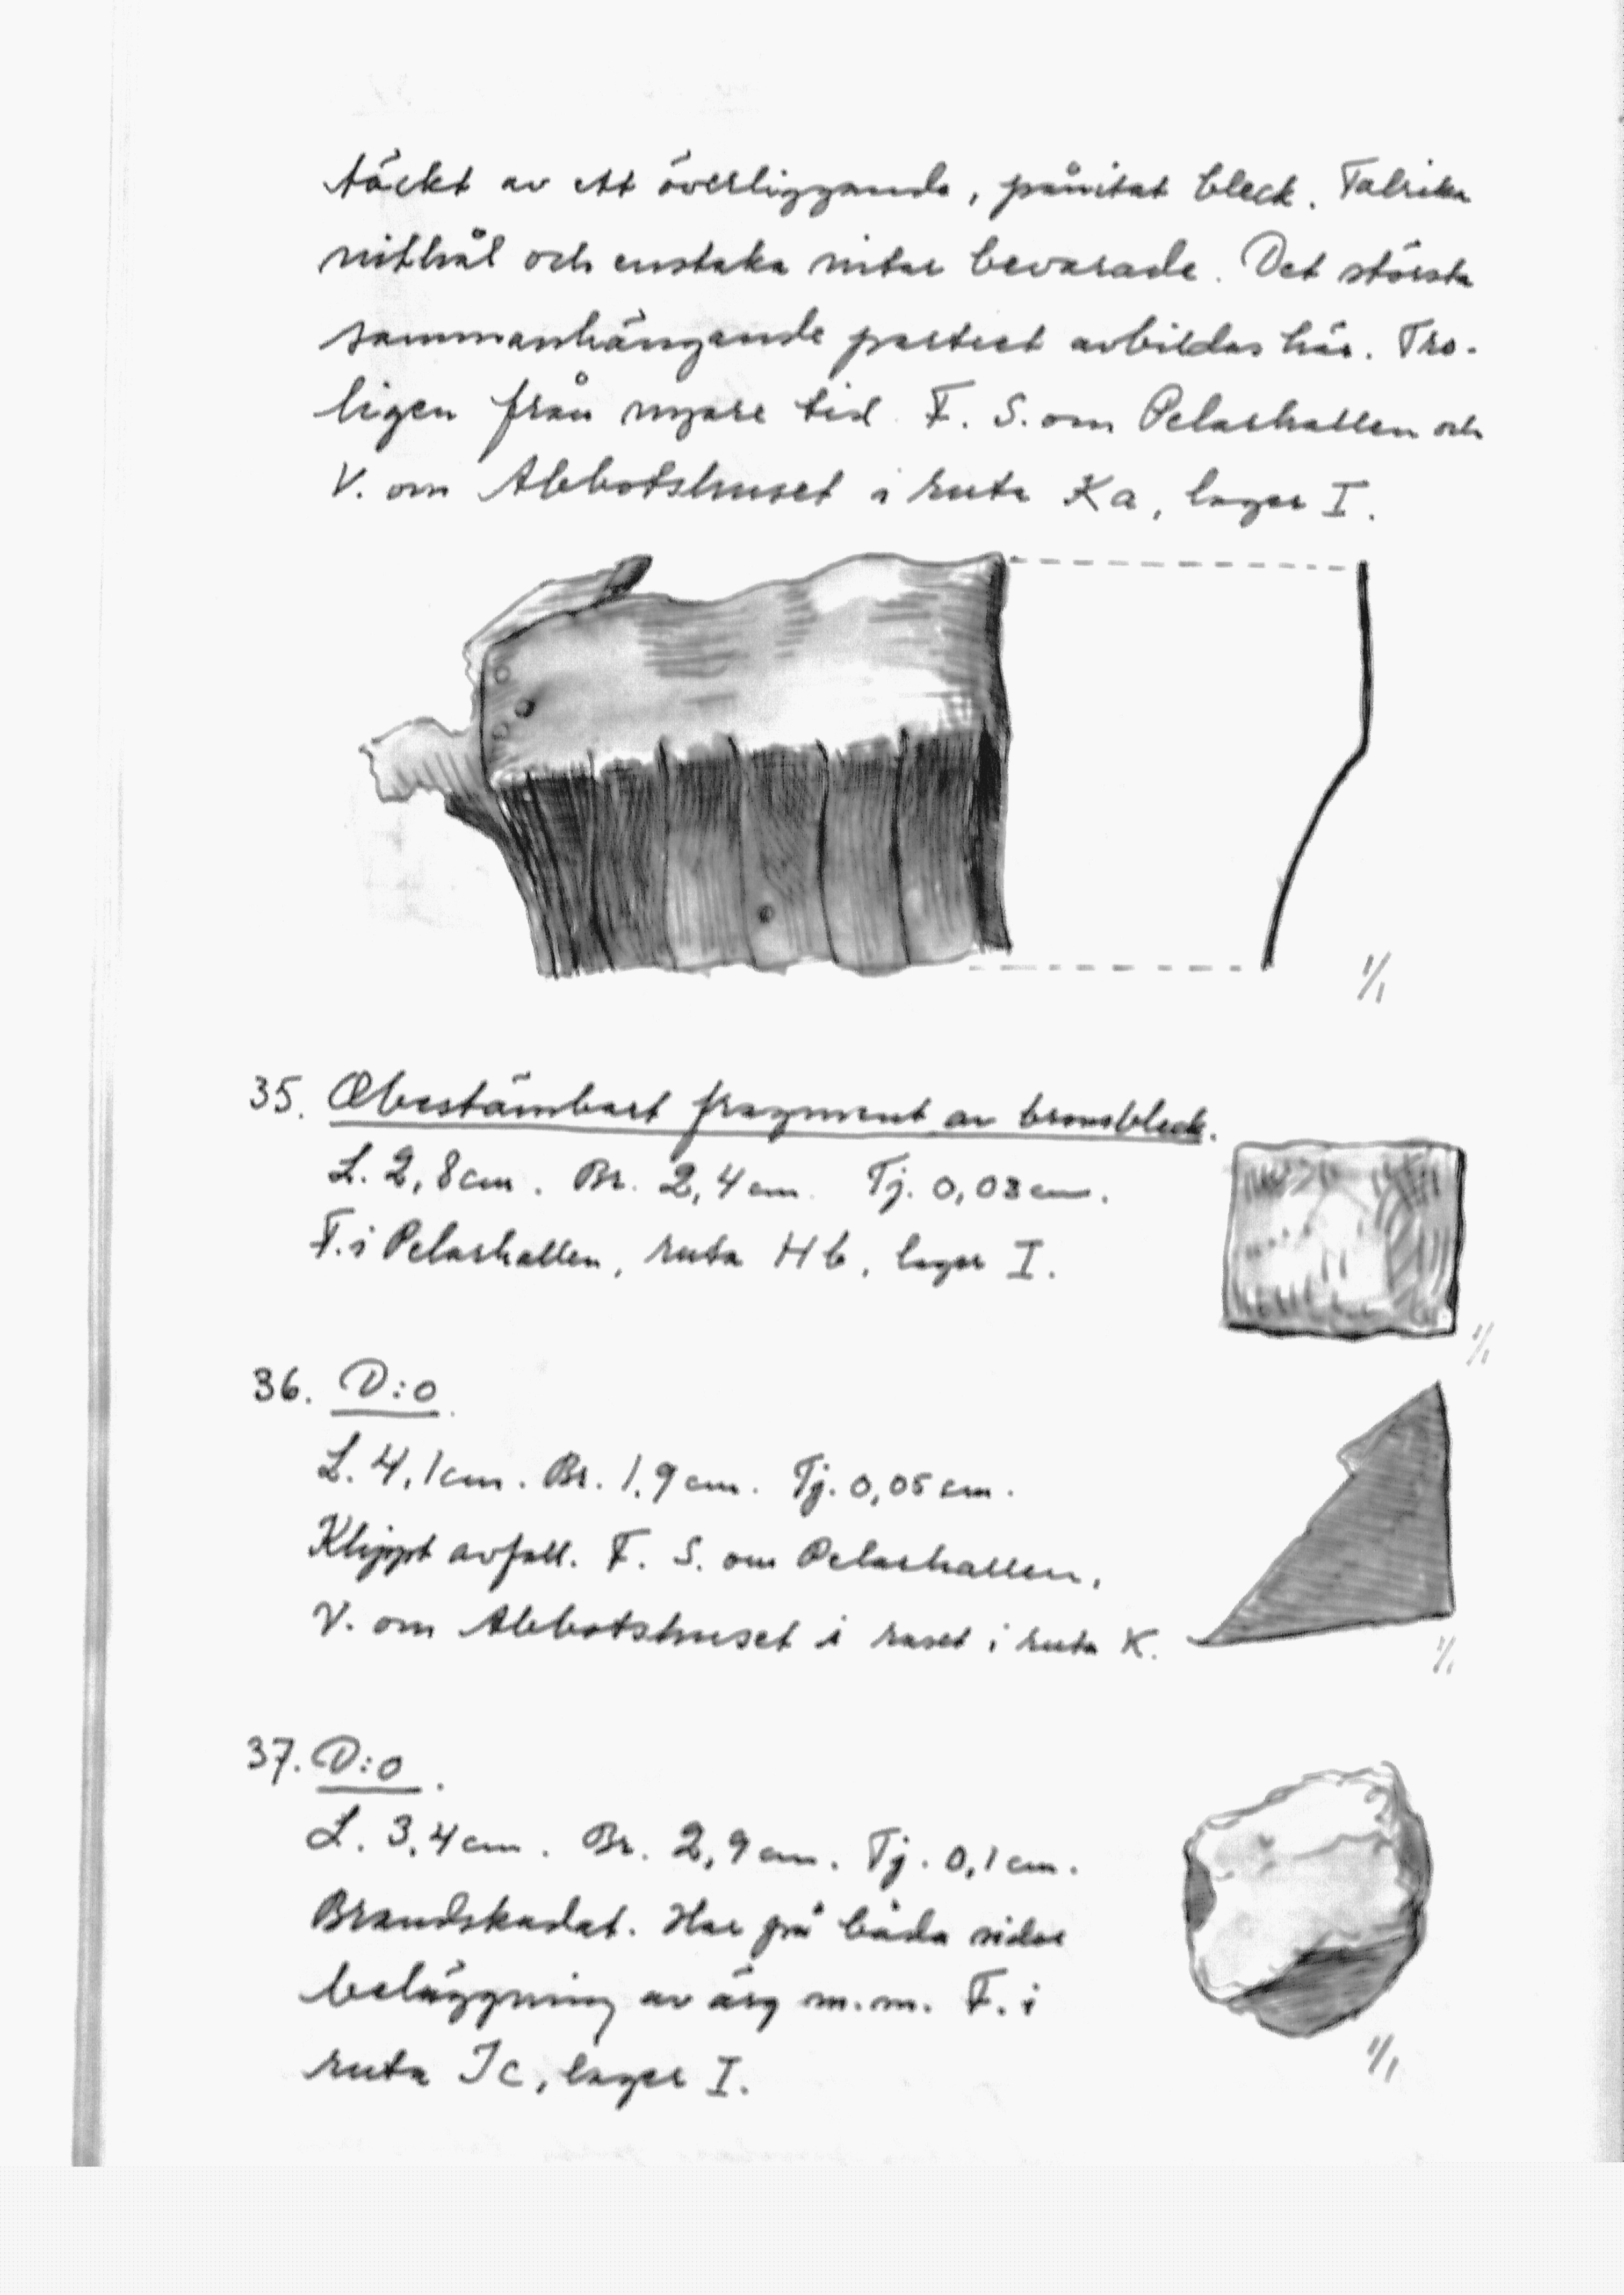 täckt av ett överliggande, pånitat bleck. Talrika
nithål och enstaka nitar bevarade. Det största
sammanhängande partiet avbildas här. Tro-
ligen från nyare tid. F. S. om Pelarhallen och
V. om Abbotshuset i ruta Ka, lager I.
1/1
35. Obestämbart fragment av bronsbleck.
L. 2,8 cm. Br. 2,4 cm. Tj. 0,08 cm.
F. i Pelarhallen, ruta Hb, lager I.
1/1
36. D:o.
L. 4,1 cm. Br. 1,9 cm. Tj. 0,05 cm.
Klippt avfall. F. S. om Pelarhallen,
V. om Abbotshuset i raset i ruta K.
1/1
37. D:o.
L. 3,4 cm. Br. 2,9 cm. Tj. 0,1 cm.
Brandskadat. Har på båda sidor
beläggning av ärg m.m. F. i
ruta Jc, lager I.
1/1